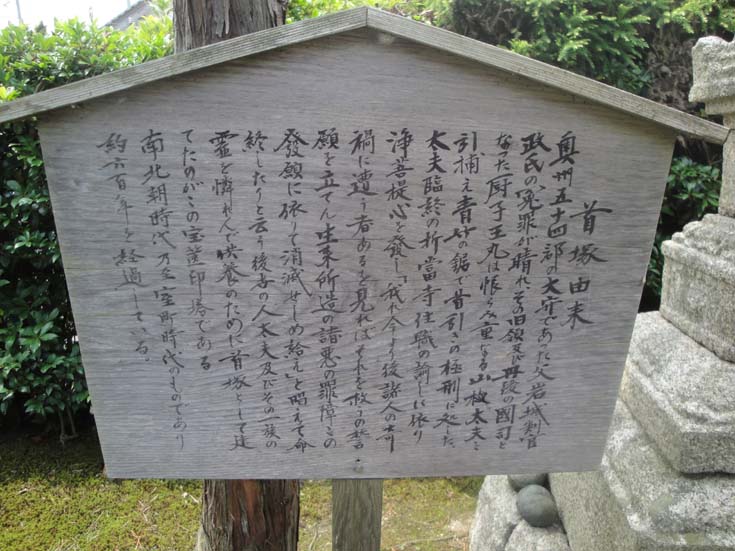 首塚由来
奥州五十四郡の太守であった父岩城判官
政氏の冤罪が晴れ、その旧領及丹後の國司と
なった厨子王丸は恨み重なる山椒太夫を
引捕え青竹の鋸で首引きの極刑に処した、
太夫臨終の折當寺住職の諭しに依り
浄菩提心を發し「我れ今より後諸人の奇
禍に遭う者あるを見ればそれを救うの誓
願を立てん生来所造の諸悪の罪障この
發願に依りて消滅せしめ給え」と唱えて命
終したりと云う後世の人太夫及びその一族の
霊を憐れんで供養のために首塚として建
てたのがこの宝篋印塔である
南北朝時代乃至室町時代のものであり
約六百年を経過している。